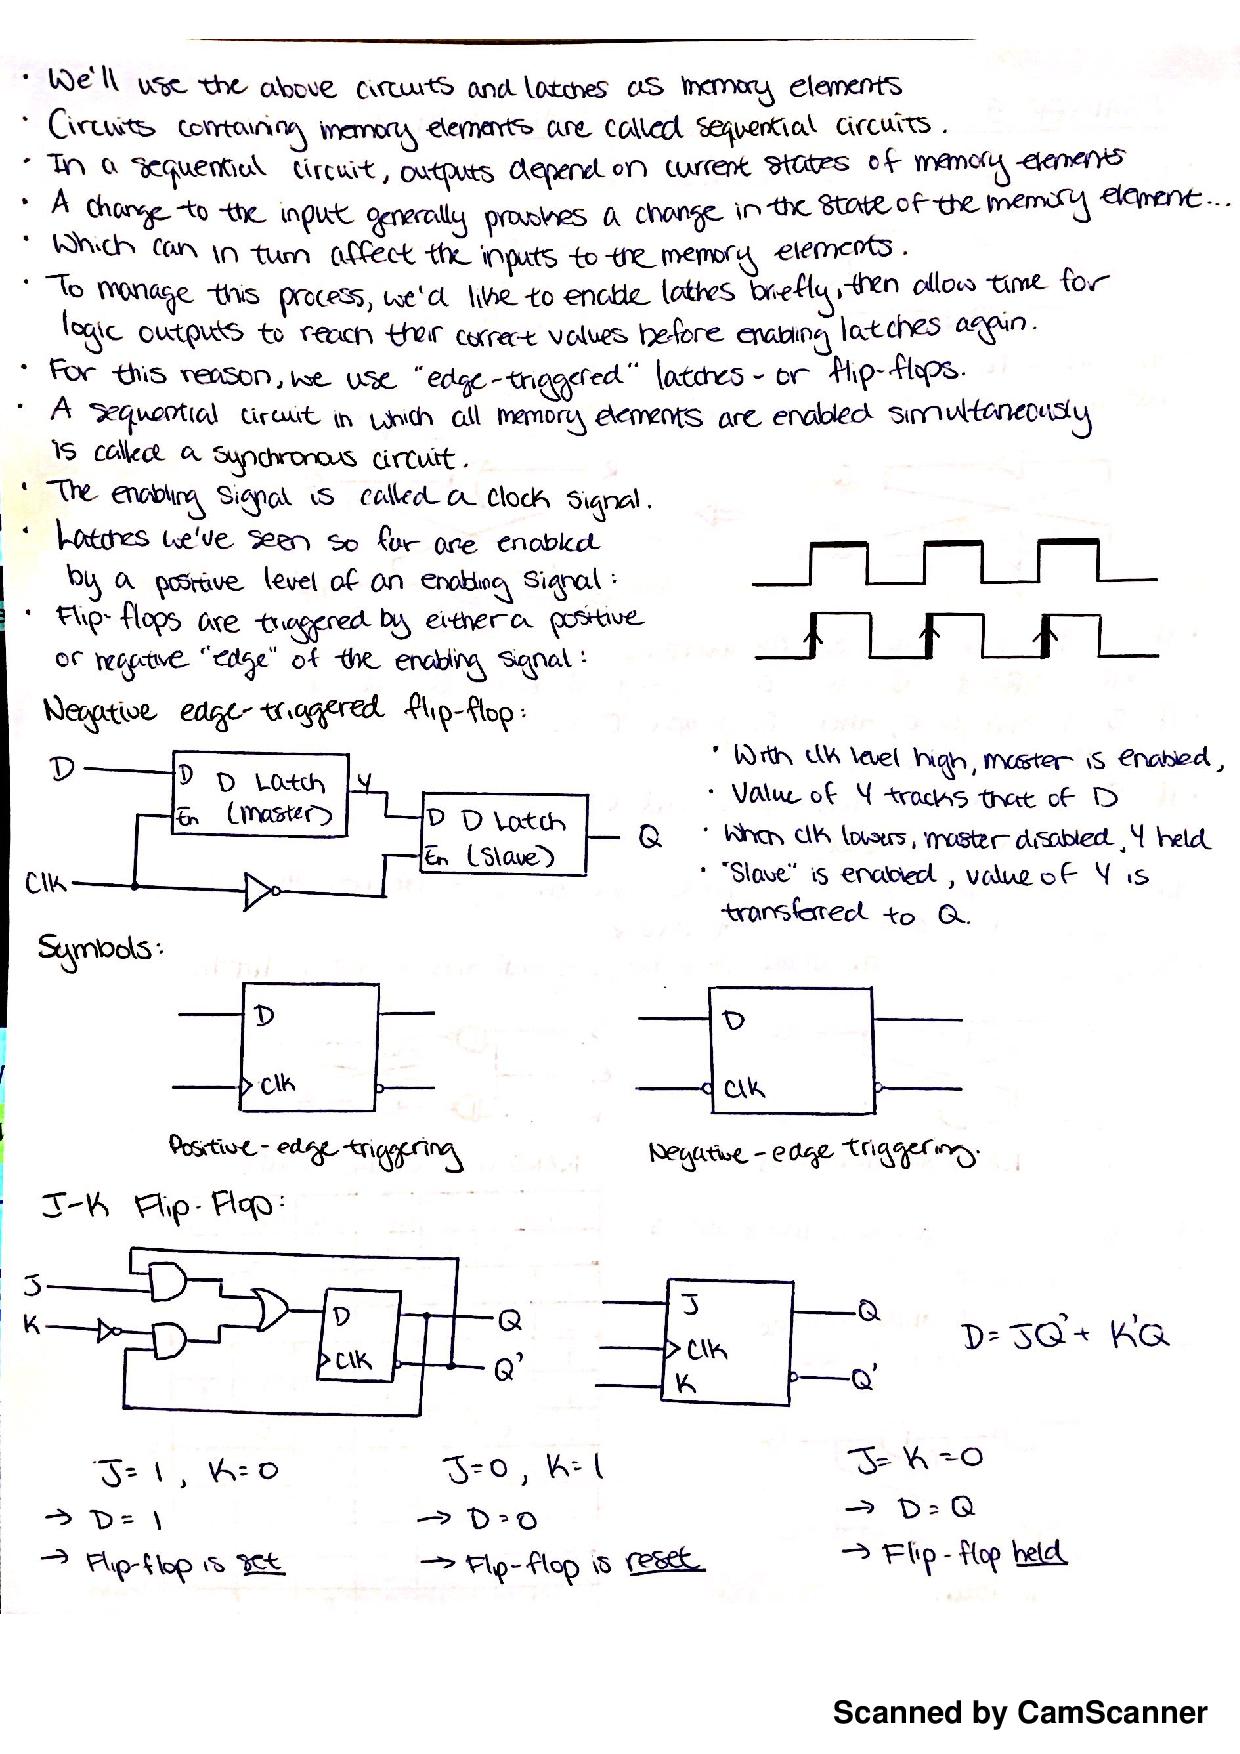 • We'll use the above circuits and latches as memory elements
• Circuits containing memory elements are called sequential circuits.
• In a sequential circuit, outputs depend on current states of memory elements
• A change to the input generally provokes a change in the state of the memory element...
• Which can in turn affect the inputs to the memory elements.
• To manage this process, we'd like to enable lathes briefly, then allow time for
logic outputs to reach their correct values before enabling latches again.
• For this reason, we use "edge-triggered" latches - or flip-flops.
• A sequential circuit in which all memory elements are enabled simultaneously
is called a synchronous circuit.
• The enabling signal is called a clock signal.
• Latches we've seen so far are enabled
by a positive level of an enabling signal:
• Flip-flops are triggered by either a positive
or negative "edge" of the enabling signal:
Negative edge-triggered flip-flop:
D D D Latch Y
En (Master)
D D Latch Q
En (Slave)
Clk
• With clk level high, master is enabled,
• Value of Y tracks that of D
• When clk lowers, master disabled, Y held
• "Slave" is enabled, value of Y is
transferred to Q.
Symbols:
D
Clk
Positive-edge triggering
D
Clk
Negative-edge triggering.
J-K Flip-Flop:
J
K
D
Clk
Q
Q'
J
Clk
K
Q
Q'
D = JQ' + K'Q
J = 1, K = 0
→ D = 1
→ Flip-flop is set
J = 0, K = 1
→ D = 0
→ Flp-flop is reset
J = K = 0
→ D = Q
→ Flip-flop held
Scanned by CamScanner